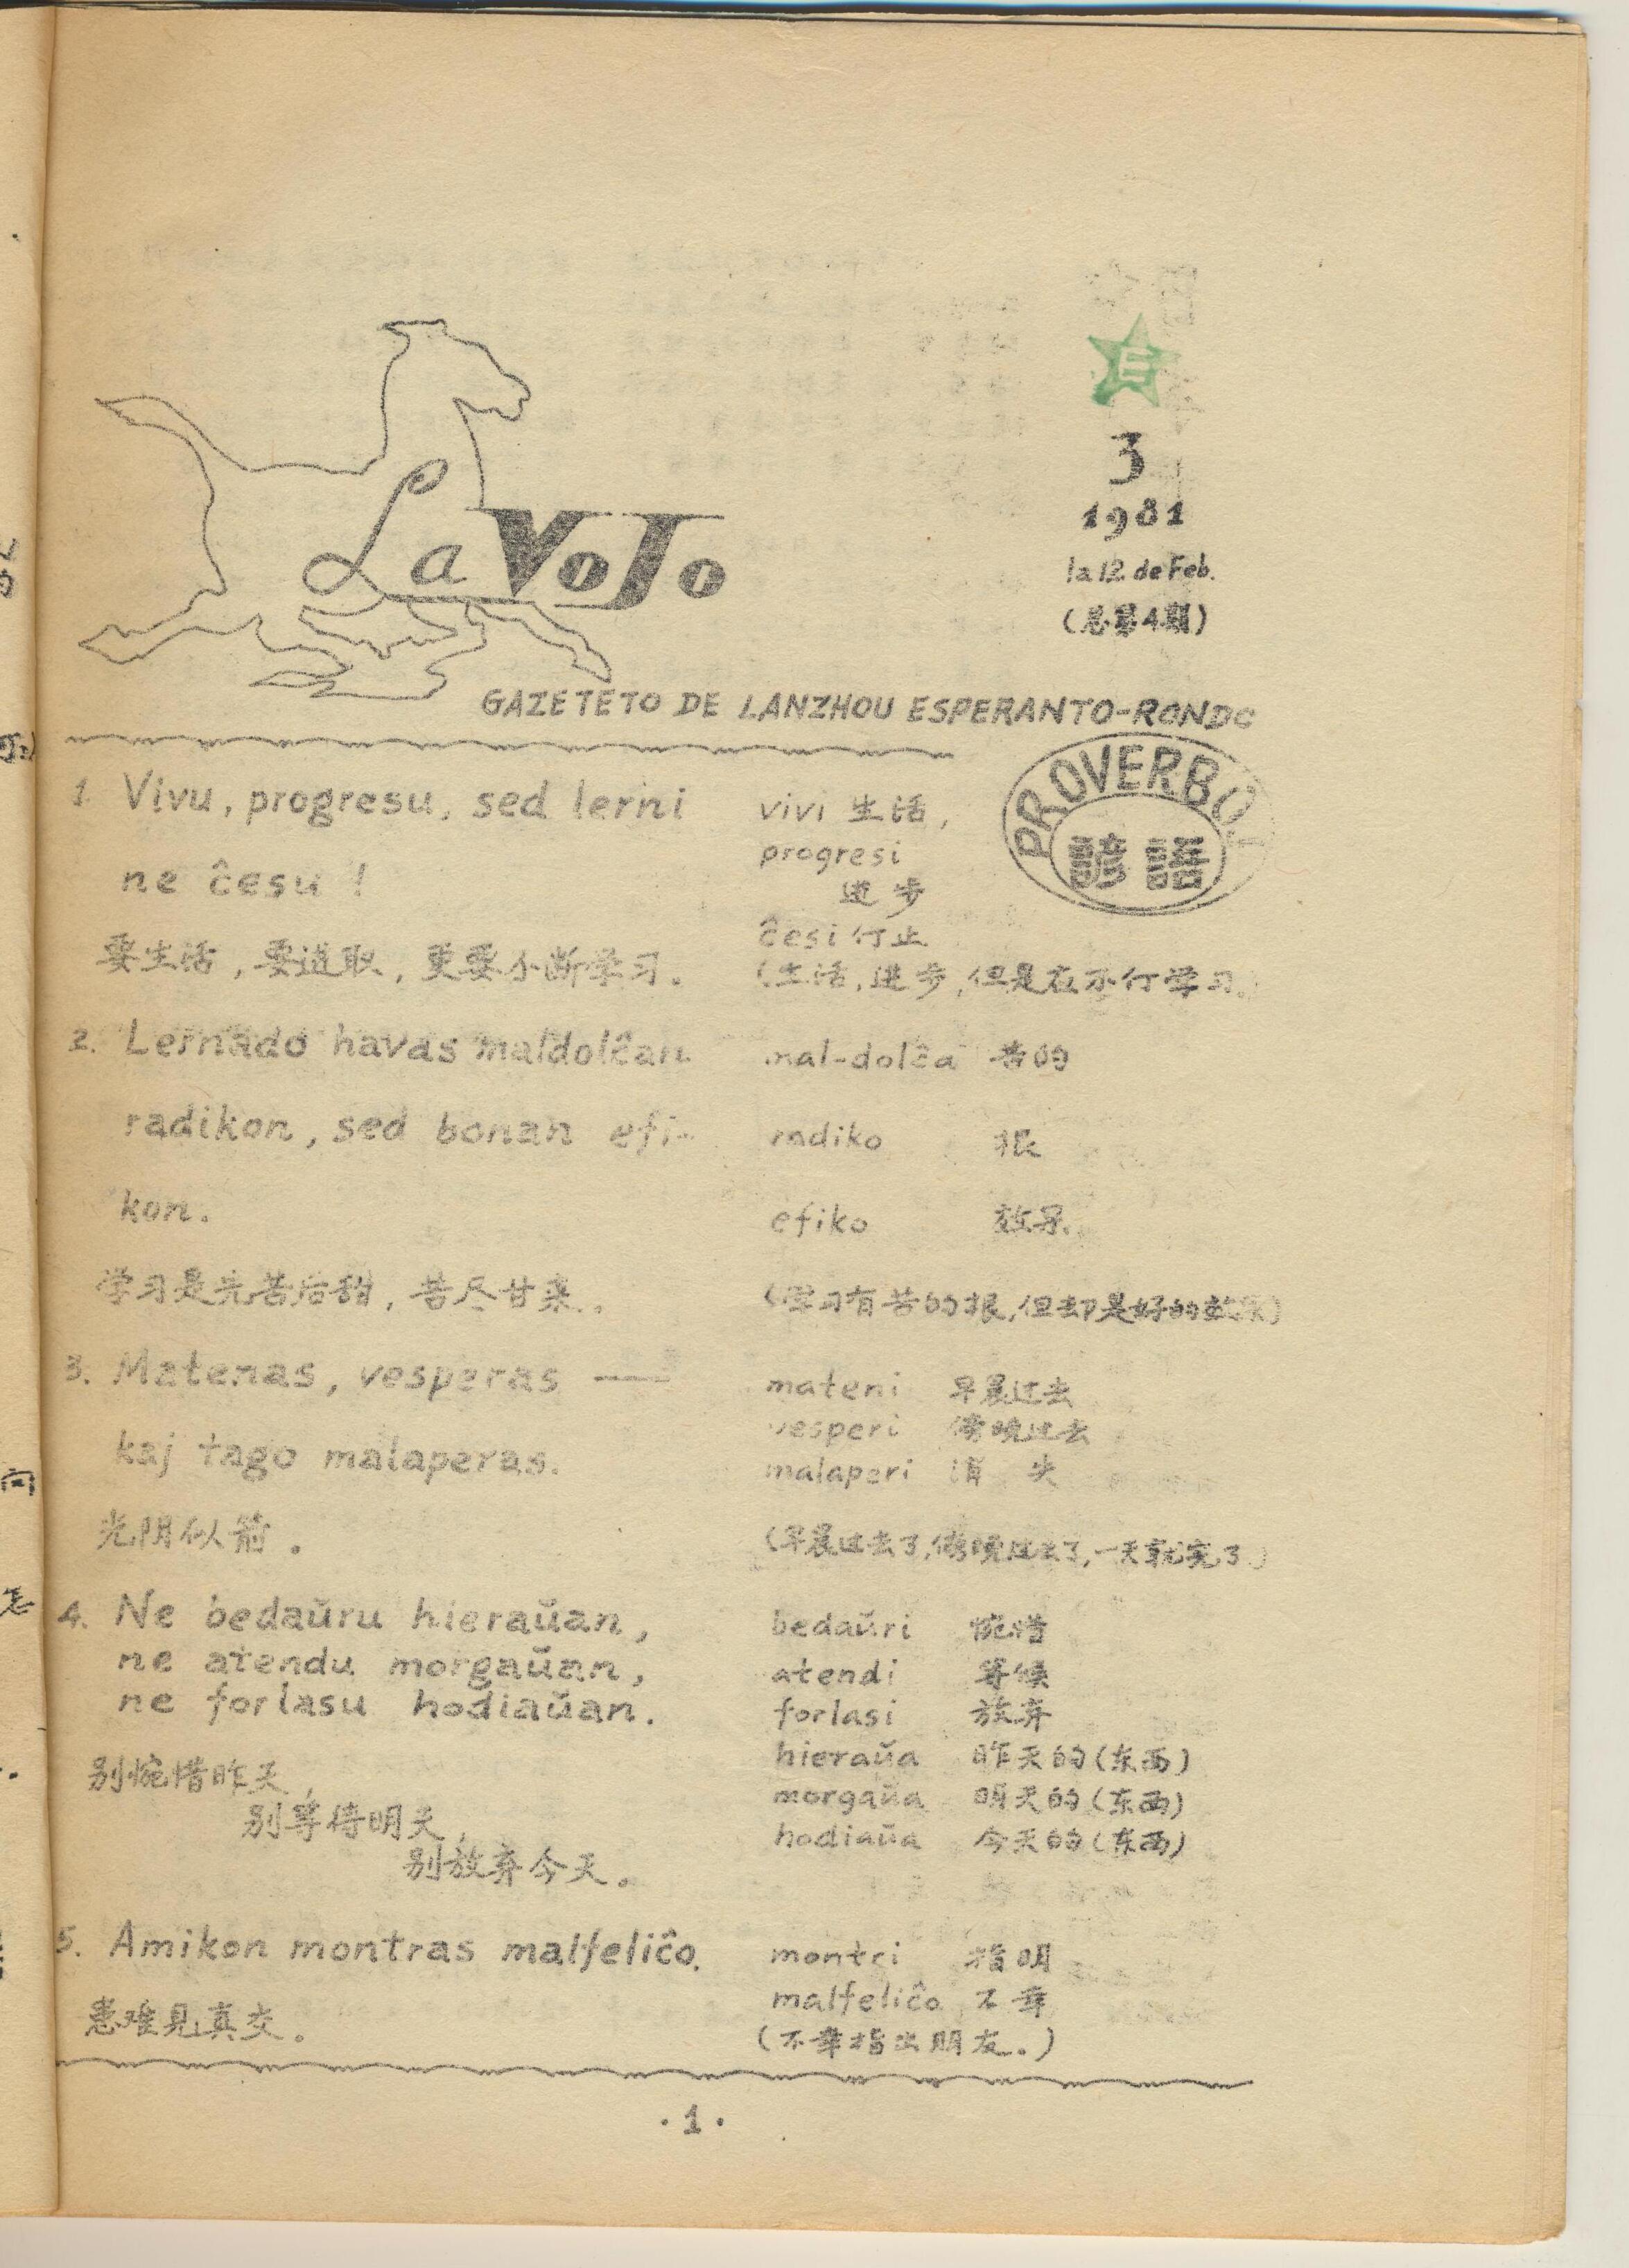 E
3
1981
la 12 de Feb.
(总第4期)
La VoJo
GAZETETO DE LANZHOU ESPERANTO-RONDO
PROVERBOJ
諺語
1. Vivu, progresu, sed lerni
ne ĉesu !
要生活,要进取,更要不断学习.
vivi 生活,
progresi
进步
ĉesi 停止
(生活,进步,但是在不停学习.)
2. Lernado havas maldolĉan
radikon, sed bonan efi-
kon.
学习是先苦后甜,苦尽甘来.
mal-dolĉa 苦的
radiko 根
efiko 效果.
(学习有苦的根,但却是好的效果)
3. Matenas, vesperas —
kaj tago malaperas.
光阴似箭.
mateni 早晨过去
vesperi 傍晚过去
malaperi 消失
(早晨过去了,傍晚过去了,一天就完了.)
4. Ne bedaŭru hieraŭan,
ne atendu morgaŭan,
ne forlasu hodiaŭan.
别惋惜昨天,
别等待明天,
别放弃今天.
bedaŭri 惋惜
atendi 等候
forlasi 放弃
hieraŭa 昨天的(东西)
morgaŭa 明天的(东西)
hodiaŭa 今天的(东西)
5. Amikon montras malfeliĉo.
患难见真交.
montri 指明
malfeliĉo 不幸
(不幸指出朋友.)
·1·